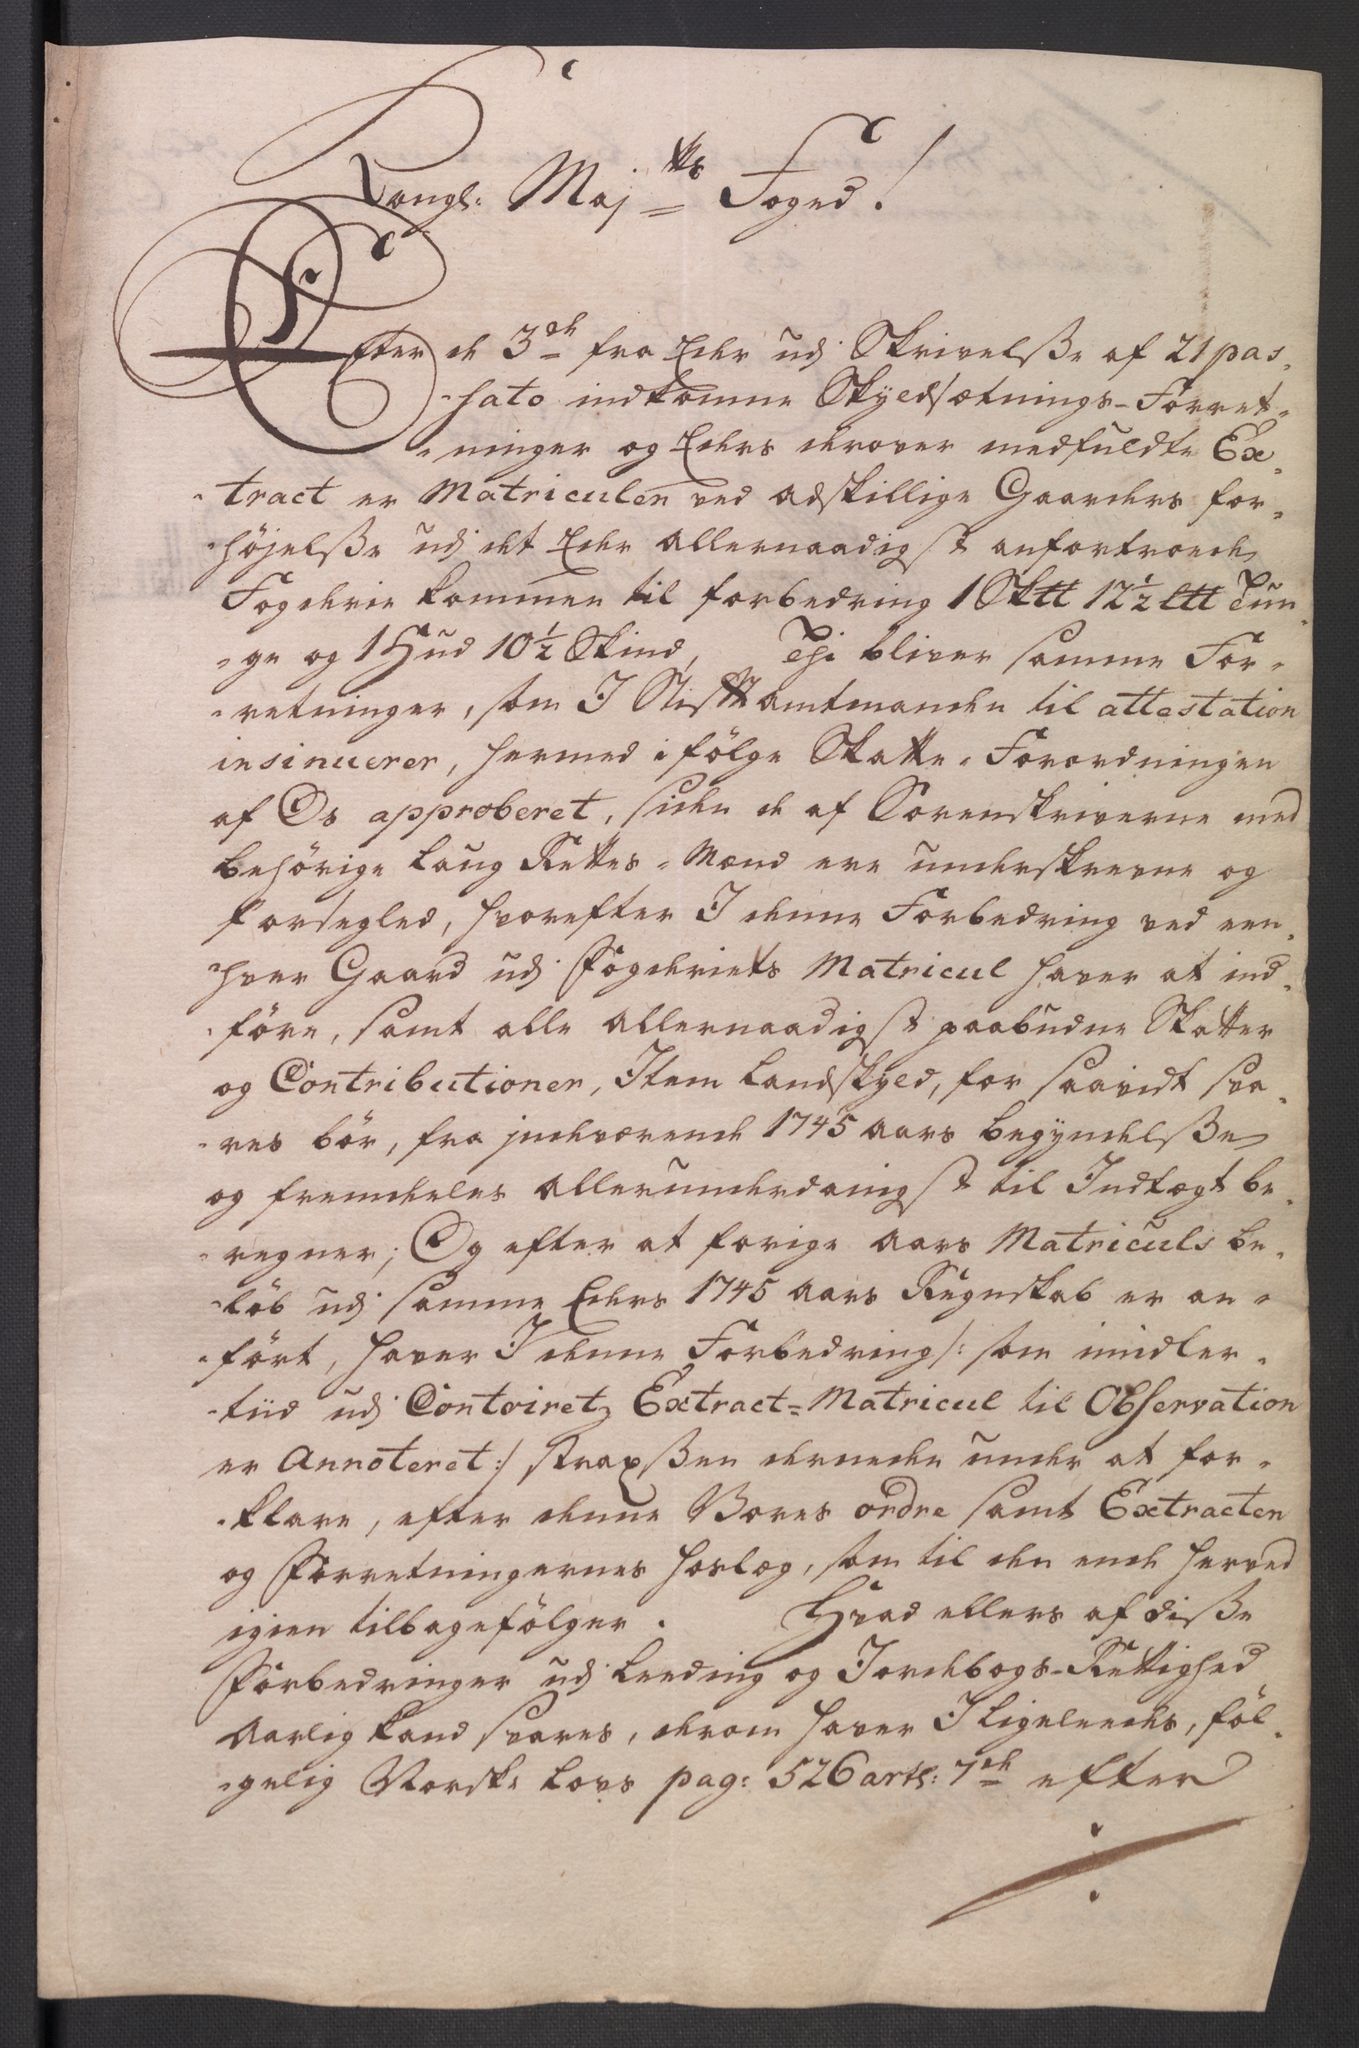 Kongl: Maj<sup>tts</sup> Foged!
Efter de 3<sup>de</sup> fra Eder udj Skrivelße af 21 pas-
-sato indkomne Skyedsætnings-Forret-
-ninger og Eders derover medfuldte Ex-
-tract er Matriculen ved adskillige Gaarders for-
-höjelße udj det Eder allernaadigst anfortroede
Fogderie kommen til forbedring 1 Sktt 12½ ltt Tun-
-ge og 1 Hud 10½ Skind, Thi bliver samme For-
-retninger, som I Stiftamtmanden til attestation
insinuerer, hermed i fölge Skatte-Forordningen
af Os approberet, siden de af Sorenskriverne med
behörige Laug Rettes-Mænd ere underskrevne og
forsegled, hvorefter I denne Forbedring ved een-
-hver Gaard udj Fogderiets Matricul haver at ind-
-före, samt alle allernaadigst paabudne Skatter
og Contributioner, Item Landskyed, for saavidt sva-
-res bör, fra indeværende 1745 Aars begyndelße
og fremdeeles allerunderdanigst til Indtægt be-
-regner; Og efter at forige Aars Matriculs be-
-löb udj samme Eders 1745 Aars Regnskab er an-
-fört, haver I denne Forbedring /: som imidler-
-tiid udj Contoiretz Extract-Matricul til Observation
er Annoteret :/ straxßen dernæden under at for-
-klare, efter denne Vores ordre samt Extracten
og Forretningernes hoslæg, som til den ende herved
igien tilbagefölger. Hvad ellers af diße
Forbedringer udj Leeding og Jordebogs-Rettighed
aarlig kand svares, derom haver I ligeleedes, föl-
-gelig Norske Lovs pag: 526 artl: 7<sup>de</sup> efter